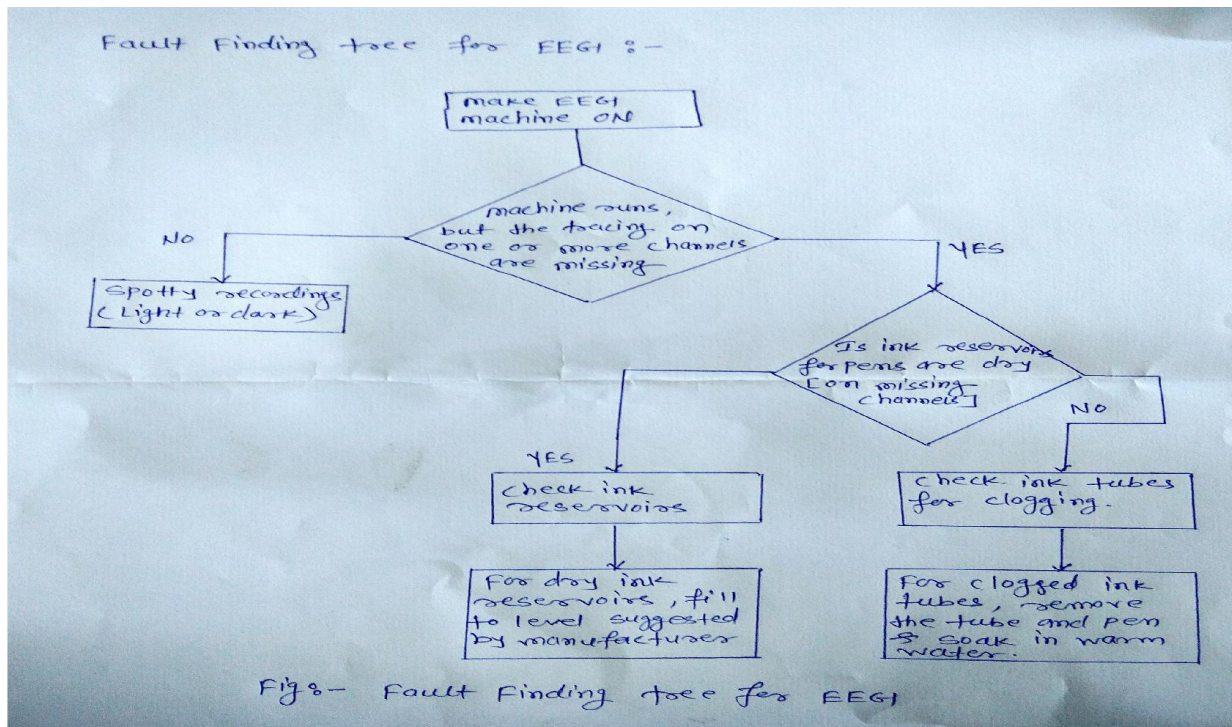 Fault Finding tree for EEG :-
make EEG
machine ON
machine runs,
but the tracing on
one or more channels
are missing
NO
YES
Spotty recordings
(Light or dark)
Is ink reservoirs
for pens are dry
[on missing
channels]
YES
NO
check ink
reservoirs
check ink tubes
for clogging.
For dry ink
reservoirs, fill
to level suggested
by manufacturer
For clogged ink
tubes, remove
the tube and pen
& soak in warm
water.
Fig:- Fault Finding tree for EEG